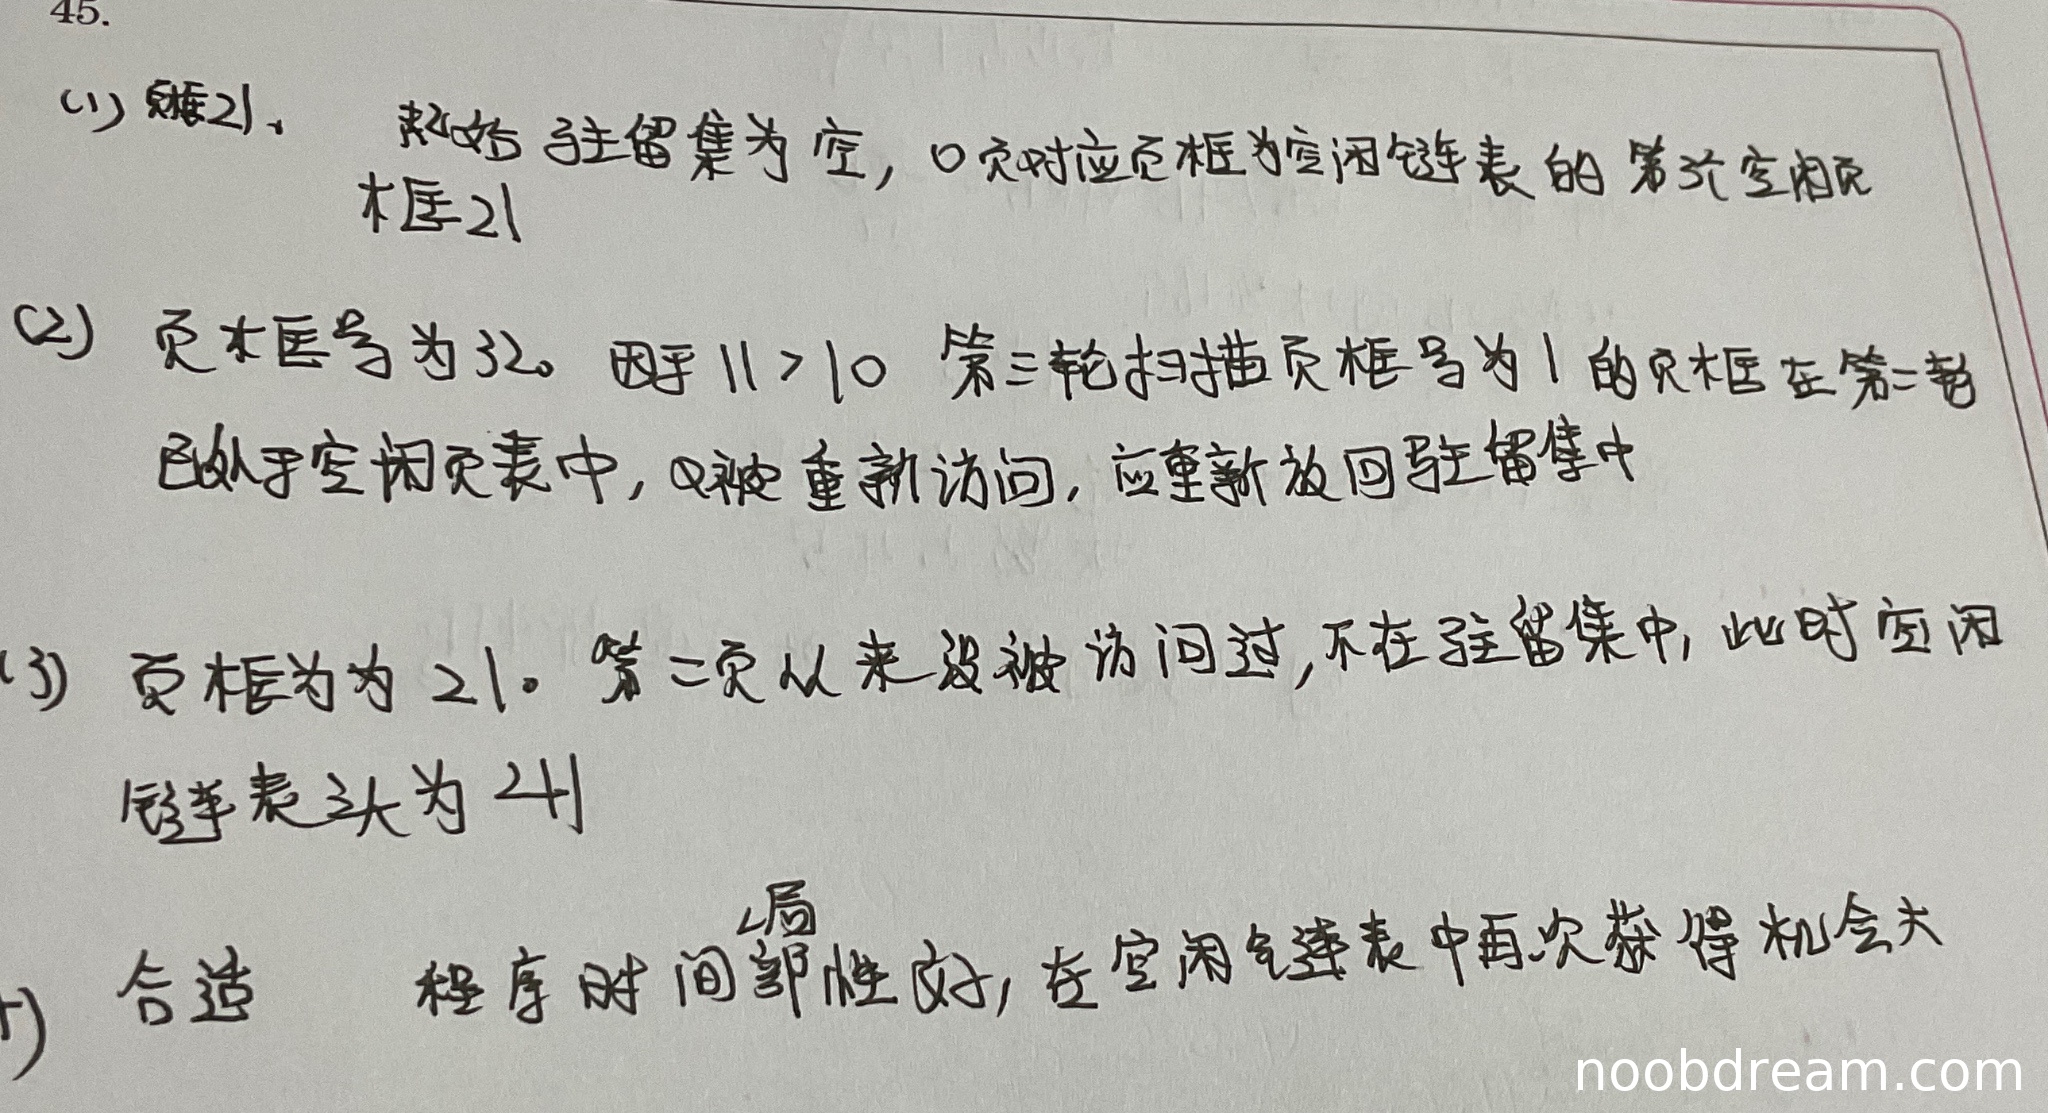 45.
(1) 页框21、 起始驻留集为空, 0页对应页框为空闲链表的第三个空闲页
框21
(2) 页框号为32。 因于11>10 第三轮扫描页框号为1的页框在第二轮
已处于空闲页表中, 被重新访问, 应重新放回驻留集中
(3) 页框为为21。第二页以来没被访问过, 不在驻留集中, 此时空闲
链表头为41
合适 程序时间局部性好, 在空闲链表中再次获得机会大
noobdream.com